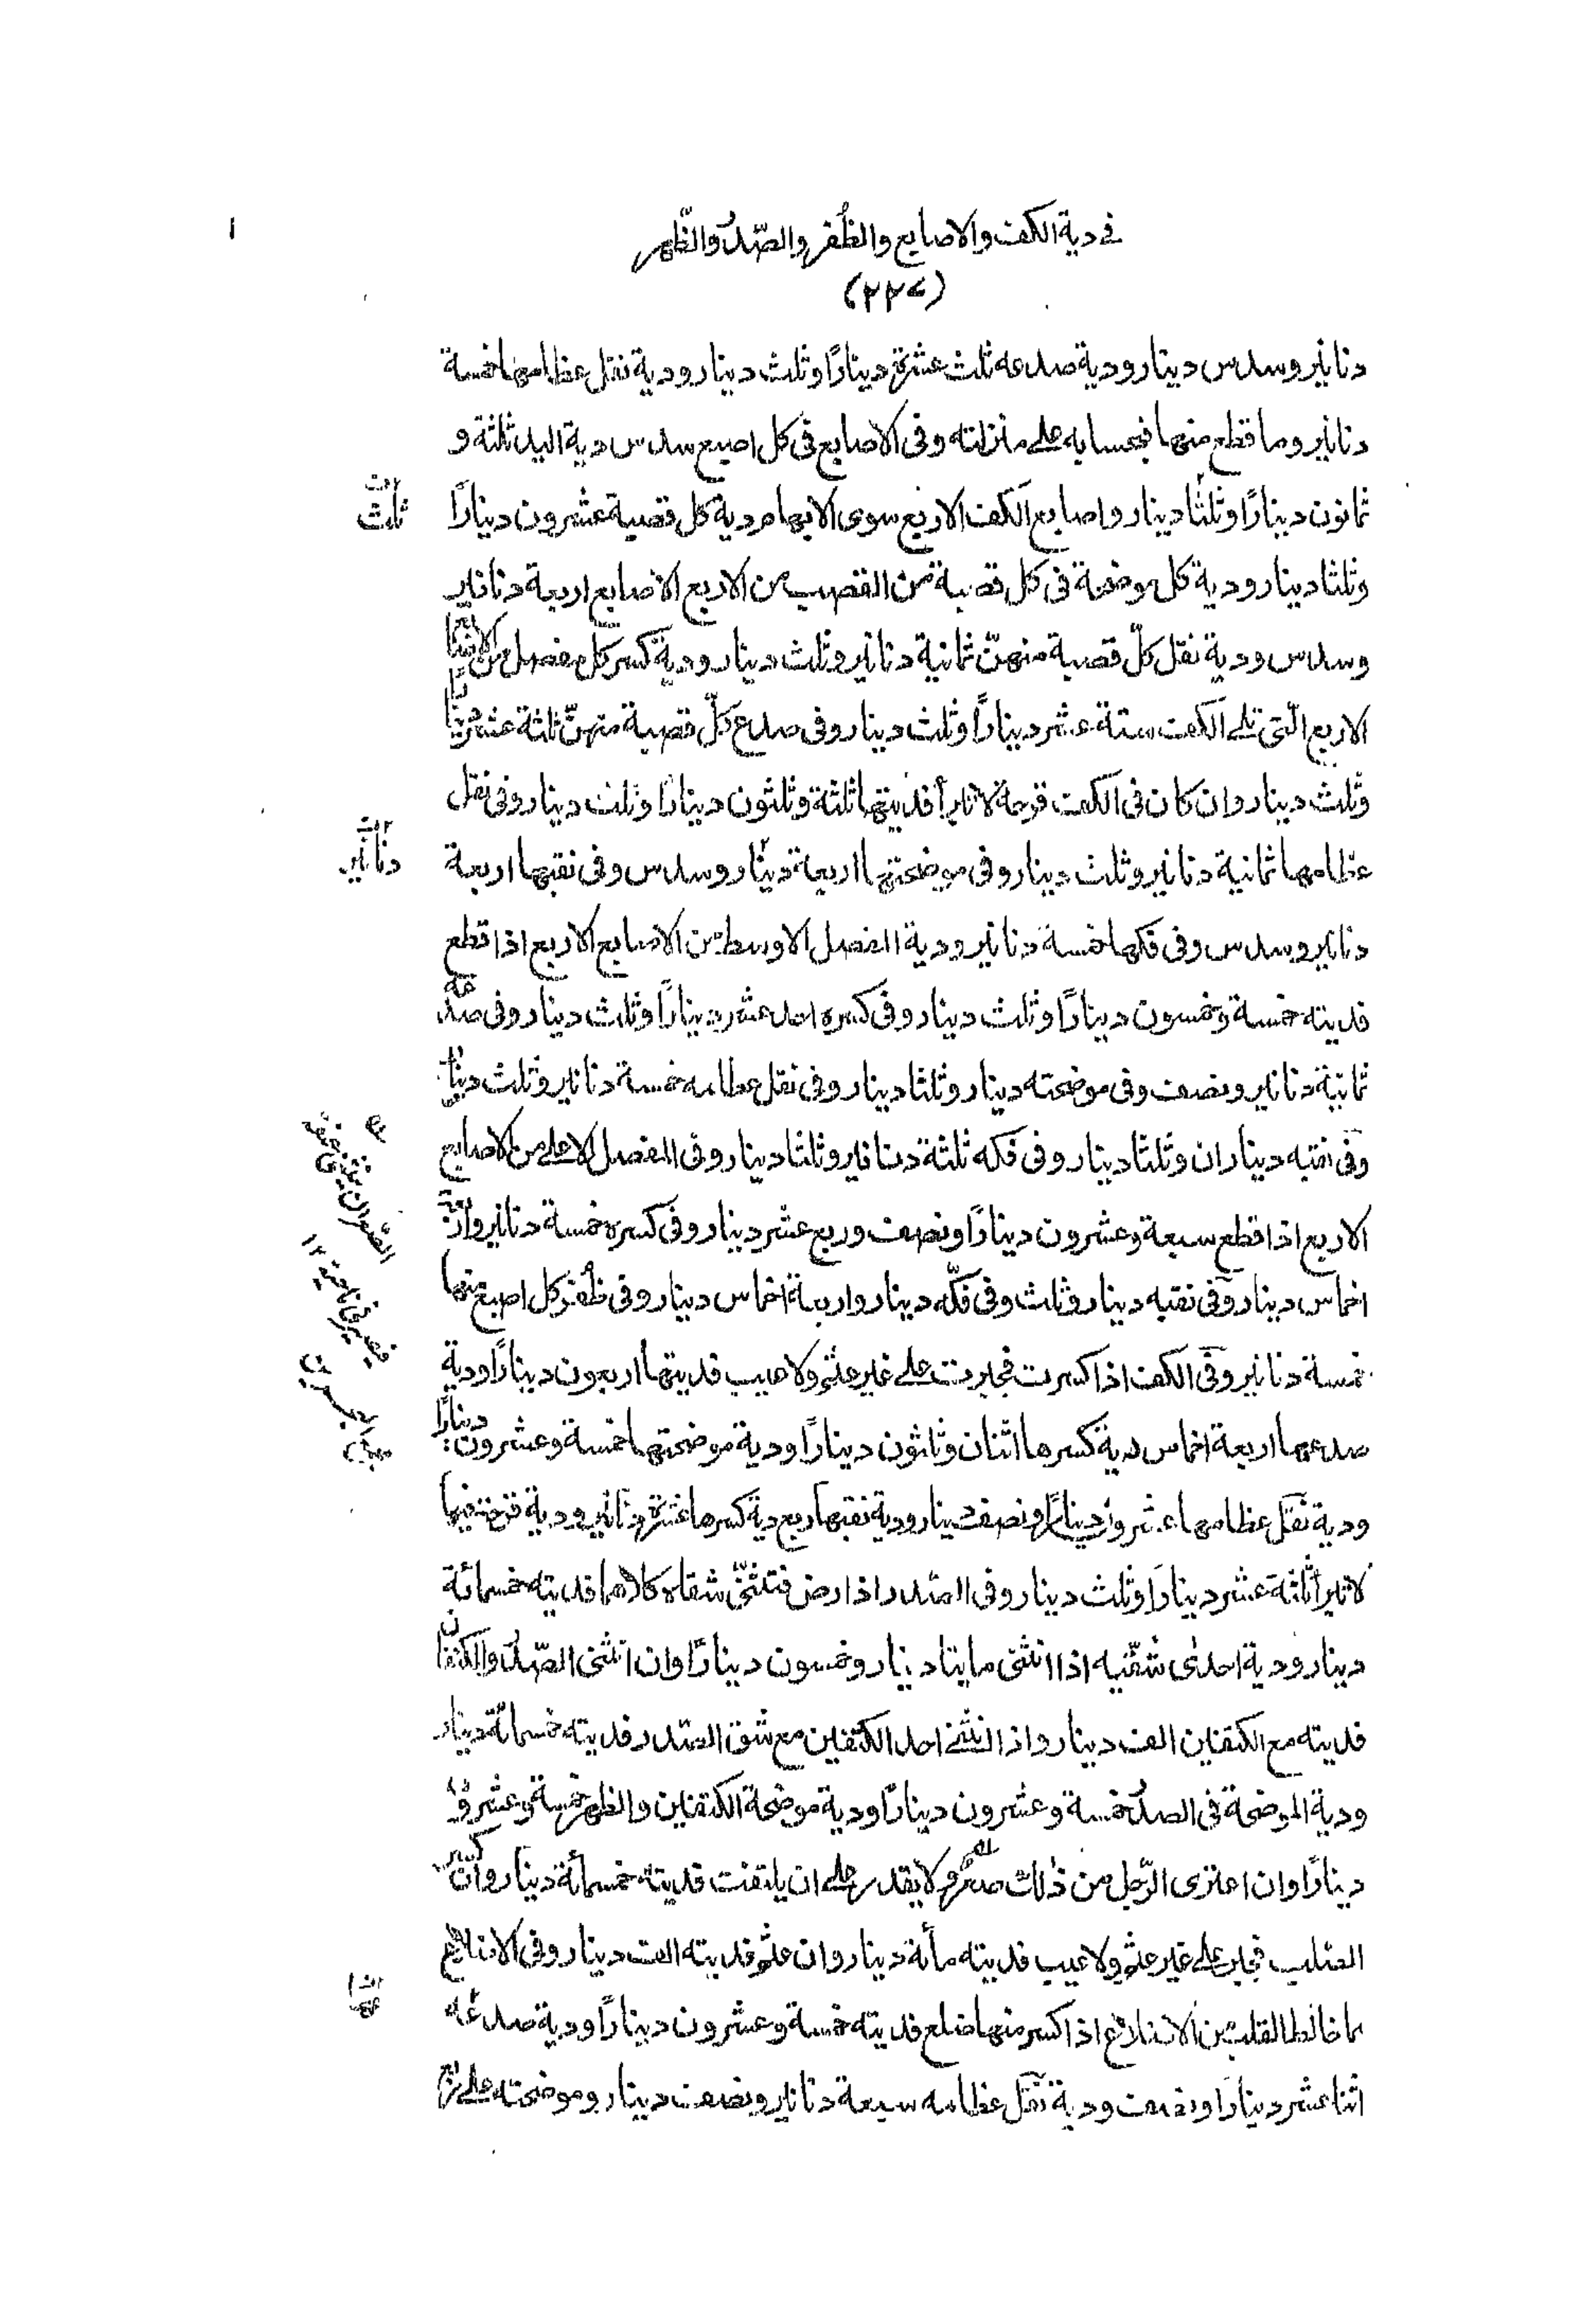 في دية الكف والاصابع والظفر والصدر والظهر
(٢٢٧)
دنانير وسدس دينار ودية صدعه ثلث عشرة دينارًا وثلث دينار ودية نقل عظامها خمسة
دنانير وما قطع منها فبحسابه على منزلته وفى الاصابع فى كل اصبع سدس دية اليد ثلثة و
ثمانون دينارًا وثلثا دينار واصابع الكف الاربع سوى الابهام دية كل قصبة عشرون دينارًا
وثلثا دينار ودية كل موضحة فى كل قصبة من القصب من الاربع الاصابع اربعة دنانير
وسدس ودية نقل كلّ قصبة منهنّ ثمانية دنانير وثلث دينار ودية كسر كل مفصل من الاصابع
الاربع الّتى تلى الكف ستة عشر دينارًا وثلث دينار وفى صدع كلّ قصبة منهنّ ثلثة عشر دينارًا
وثلث دينار وان كان فى الكف قرحة لا تبرأ فديتها ثلثة وثلثون دينارًا وثلث دينار وفى نقل
عظامها ثمانية دنانير وثلث دينار وفى موضحتها اربعة دينار وسدس وفى نقبها اربعة
دنانير وسدس وفى فكها خمسة دنانير ودية المفصل الاوسط من الاصابع الاربع اذا قطع
فديته خمسة وخمسون دينارًا وثلث دينار وفى كسره احد عشر دينارًا وثلث دينار وفى صدعه
ثمانية دنانير ونصف وفى موضحته دينار وثلثا دينار وفى نقل عظامه خمسة دنانير وثلث دينار
وفى نقبه ديناران وثلثا دينار وفى فكه ثلثة دنانير وثلثا دينار وفى المفصل الاعلى من الاصابع
الاربع اذا قطع سبعة وعشرون دينارًا ونصف وربع عشر دينار وفى كسره خمسة دنانير واربعة
اخماس دينار وفى نقبه دينار وثلث وفى فكّه دينار واربعة اخماس دينار وفى ظفر كل اصبع منها
خمسة دنانير وفى الكف اذا كسرت فجبرت على غير عثم ولا عيب فديتها اربعون دينارًا ودية
صدعها اربعة اخماس دية كسرها اثنان وثلثون دينارًا ودية موضحتها خمسة وعشرون دينارًا
ودية نقل عظامها عشرون دينارًا ونصف دينار ودية نقبها ربع دية كسرها عشرة دنانير ودية قرحة فيها
لا تبرأ ثلثة عشر دينارًا وثلث دينار وفى الصّدر اذا رض فتثنّى شقاه كلاهما فديته خمسمائة
دينار ودية احدى شقّيه اذا انثنى مايتا دينار وخمسون دينارًا وان انثنى الصّدر والكتفان
فديته مع الكتفين الف دينار واذا انثنى احد الكتفين مع شق الصّدر فديته خمسمائة دينار
ودية الموضحة فى الصدر خمسة وعشرون دينارًا ودية موضحة الكتفين والظهر خمسة وعشرون
دينارًا وان اعترى الرّجل من ذلك صعر ولا يقدر على ان يلتفت فديته خمسمائة دينار وان كسر
الصّلب فجبر على غير عثم ولا عيب فديته مأئة دينار وان عثم فديته الف دينار وفى الاضلاع
ما خالط القلب من الاضلاع اذا كسر منها ضلع فديته خمسة وعشرون دينارًا ودية صدعه
اثنا عشر دينارًا ونصف ودية نقل عظامه سبعة دنانير ونصف دينار وموضحته على ربع
ثلث
دنانير